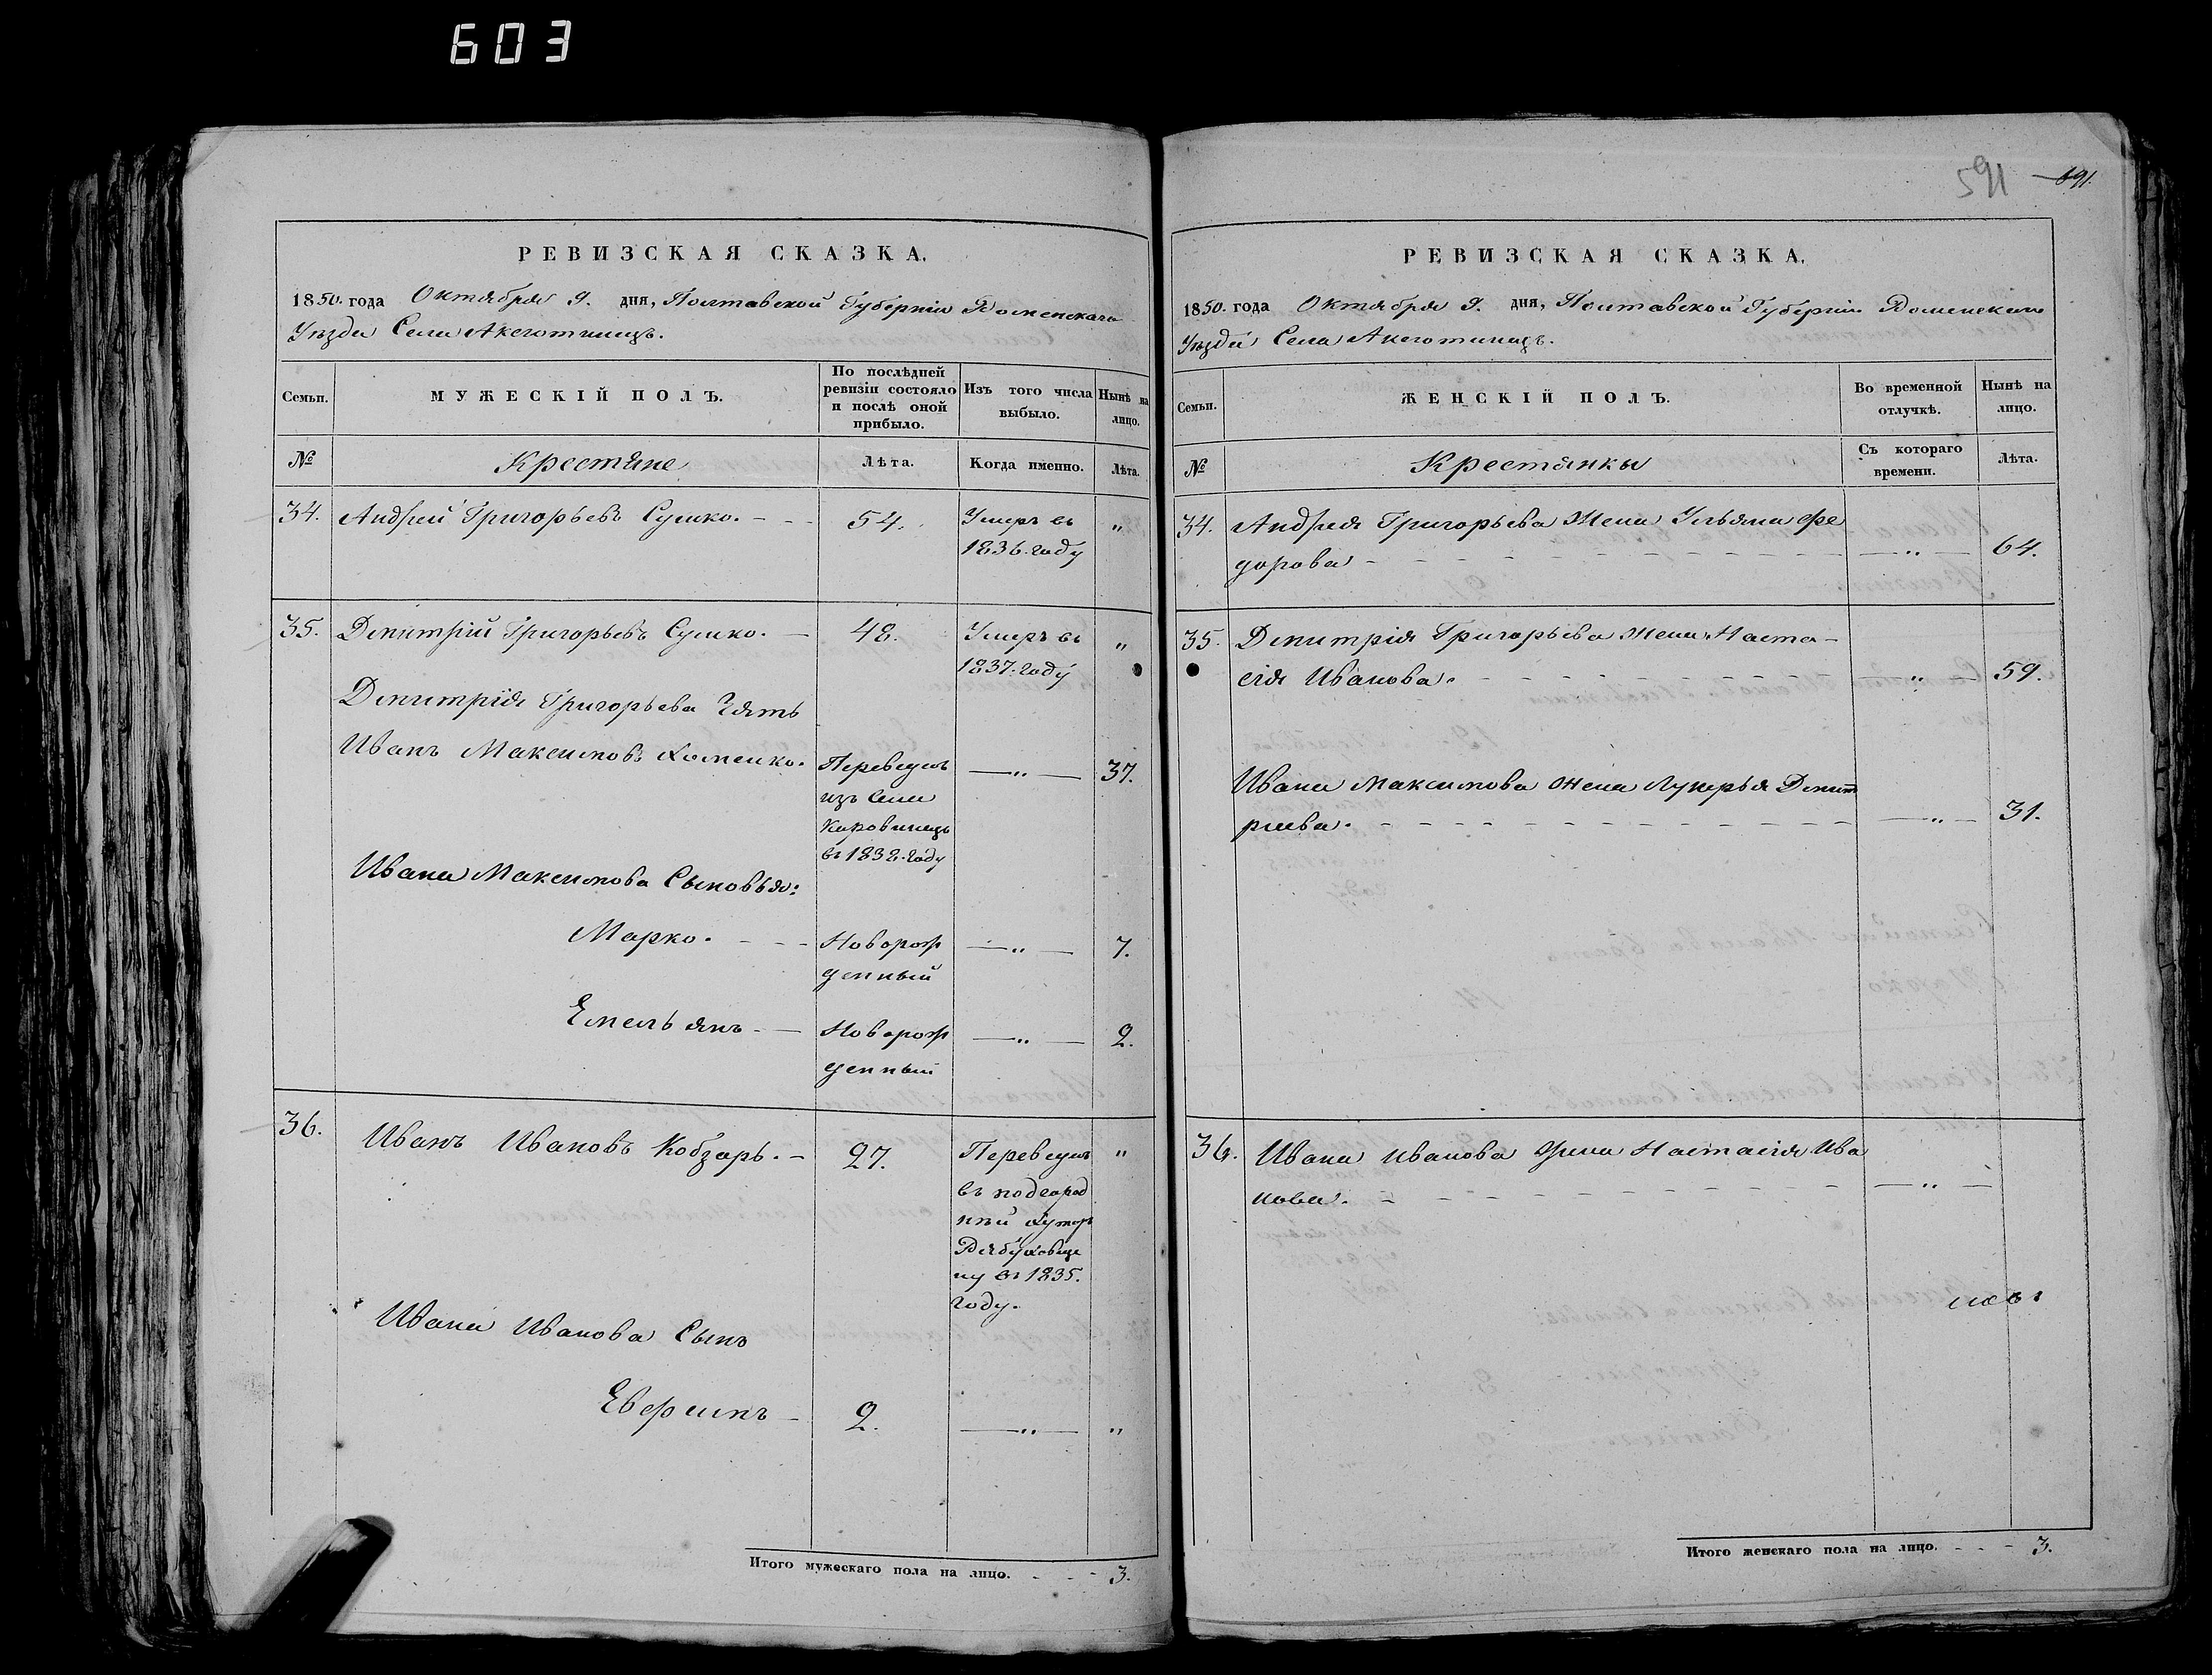 603
РЕВИЗСКАЯ СКАЗКА.
1850. года Октября 9. дня, Полтавской Губерніи Роменскаго
Уѣзда Села Аксютинецъ.
Семьи.
МУЖЕСКІЙ ПОЛЪ.
По послѣдней
ревизіи состояло
и послѣ оной
прибыло.
Изъ того числа
выбыло.
Нынѣ на
лицо.
№
Крестьяне
Лѣта.
Когда именно.
Лѣта.
34. Андрей Григорьевъ Сушко. 54. Умеръ въ "
1836. году
35. Дмитрій Григорьевъ Сушко. 48. Умеръ въ "
1837. году
Дмитрія Григорьева Зять
Иванъ Максимовъ Хоменко. Переведенъ " 37.
изъ Села
Коровинецъ
въ 1838. году
Ивана Максимова Сыновья:
Марко. Новорож " 7.
денный
Емельянъ Новорож " 2.
денный
36. Иванъ Ивановъ Кобзарь. 27. Переведенъ "
въ подгород
ній Хуторъ
Рябуховще
ну въ 1835.
году.
Ивана Иванова Сынъ
2. " "
Итого мужескаго пола на лицо. 3.
591 691.
РЕВИЗСКАЯ СКАЗКА.
1850. года Октября 9. дня, Полтавской Губерніи Роменскаго
Уѣзда Села Аксютинецъ.
Семьи.
ЖЕНСКІЙ ПОЛЪ.
Во временной
отлучкѣ.
Нынѣ на
лицо.
№
Крестьянки
Съ котораго
времени.
Лѣта.
34. Андрея Григорьева Жена Ульяна Фе
дорова " 64.
35. Дмитрія Григорьева Жена Наста-
сія Иванова. " 59.
Ивана Максимова Жена Лукерья Дмит
ріева. " 31.
36. Ивана Иванова Жена Настасія Ива
нова. "
Итого женскаго пола на лицо. 3.